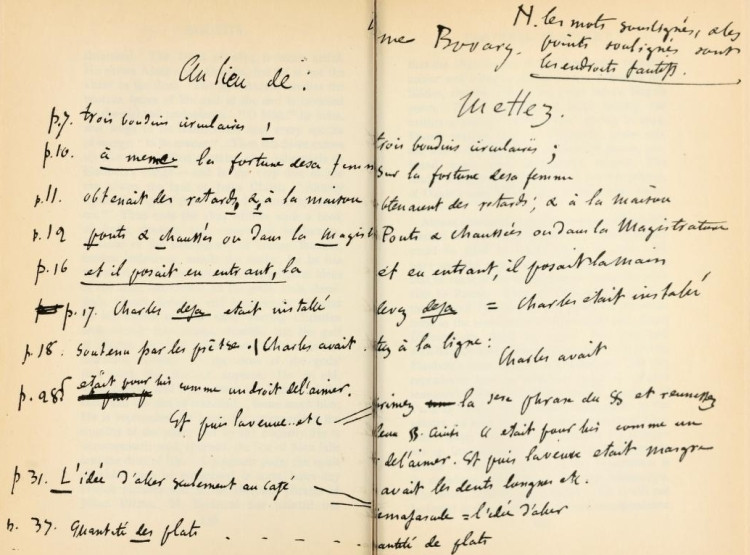 Au lieu de :
p.7. trois boudins circulaires !
p.10. à meme la fortune desa femm
p.11. obtenait des retards, & à la maison
p.12 ponts & chaussées ou dans la Magist
p.16 et il posait en entrant, la
p.17. Charles deja etait installé
p.18. Soutenu par les prêtre. / Charles avait
p. 28 etait pour lui comme un droit del'aimer.
Et puis la veuve.. etc
p 31. L'idée d'aller seulement au café
p. 37. Quantité des plats - - - - -
me Bovary.
N. les mots soulignés, & les
points soulignés sont
les endroits fautifs.
Mettez.
trois boudins circulaires ;
sur la fortune desa femme
btenaient des retards ; & à la maison
Ponts & chaussées ou dans la Magistrature
et en entrant, il posait la main
levez deja = Charles etait installé
tez à la ligne :
Charles avait
primez la phrase du § et reunissez
§. ainsi etait pour lui comme un
del'aimer. Et puis la veuve etait maigre
avait les dents longues etc.
= l'idée d'aller
antité de plats